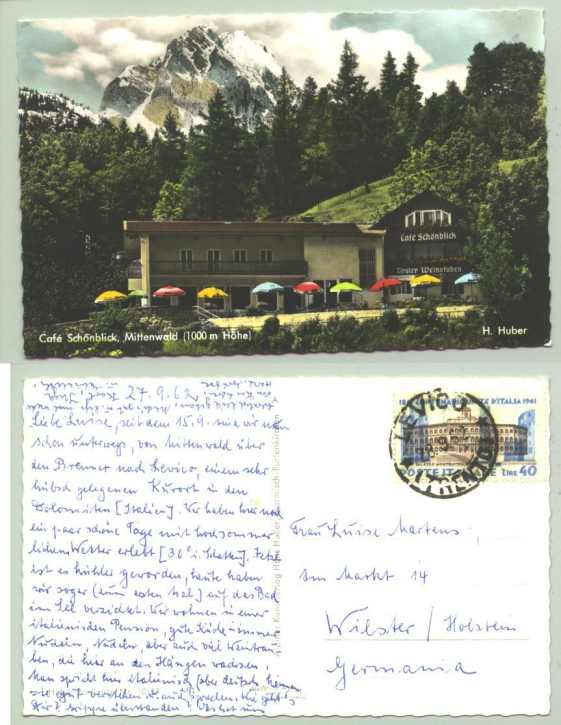 Café Schönblick
Tiroler Weinstuben
Café Schönblick, Mittenwald (1000 m Höhe)
H. Huber
27.9.62
Liebe Luise, seit dem 15.9. sind wir nun
schon unterwegs, von Mittenwald über
den Brenner nach Levico, einem sehr
hübsch gelegenen Kurort in den
Dolomiten [Italien]. Wir haben hier noch
ein paar schöne Tage mit hochsommer
lichem Wetter erlebt [30° i. Schatten]. Jetzt
ist es kühler geworden, heute haben
wir sogar (zum ersten Mal) auf das Bad
im See verzichtet. Wir wohnen in einer
italienischen Pension, gute Küche – immer
Nudeln, Nudeln, aber auch viel Weintrau
ben, die hier an den Hängen wachsen.
Man spricht hier italienisch (aber deutsch können
sie gut verstehen u. auch sprechen. Wie geht's
Dir? Grippe überstanden?
LEVICO
(TRENTO)
UNITÀ D'ITALIA 1961
POSTE ITALIANE LIRE 40
Frau Luise Martens
Am Markt 14
Wilster / Holstein
Germania